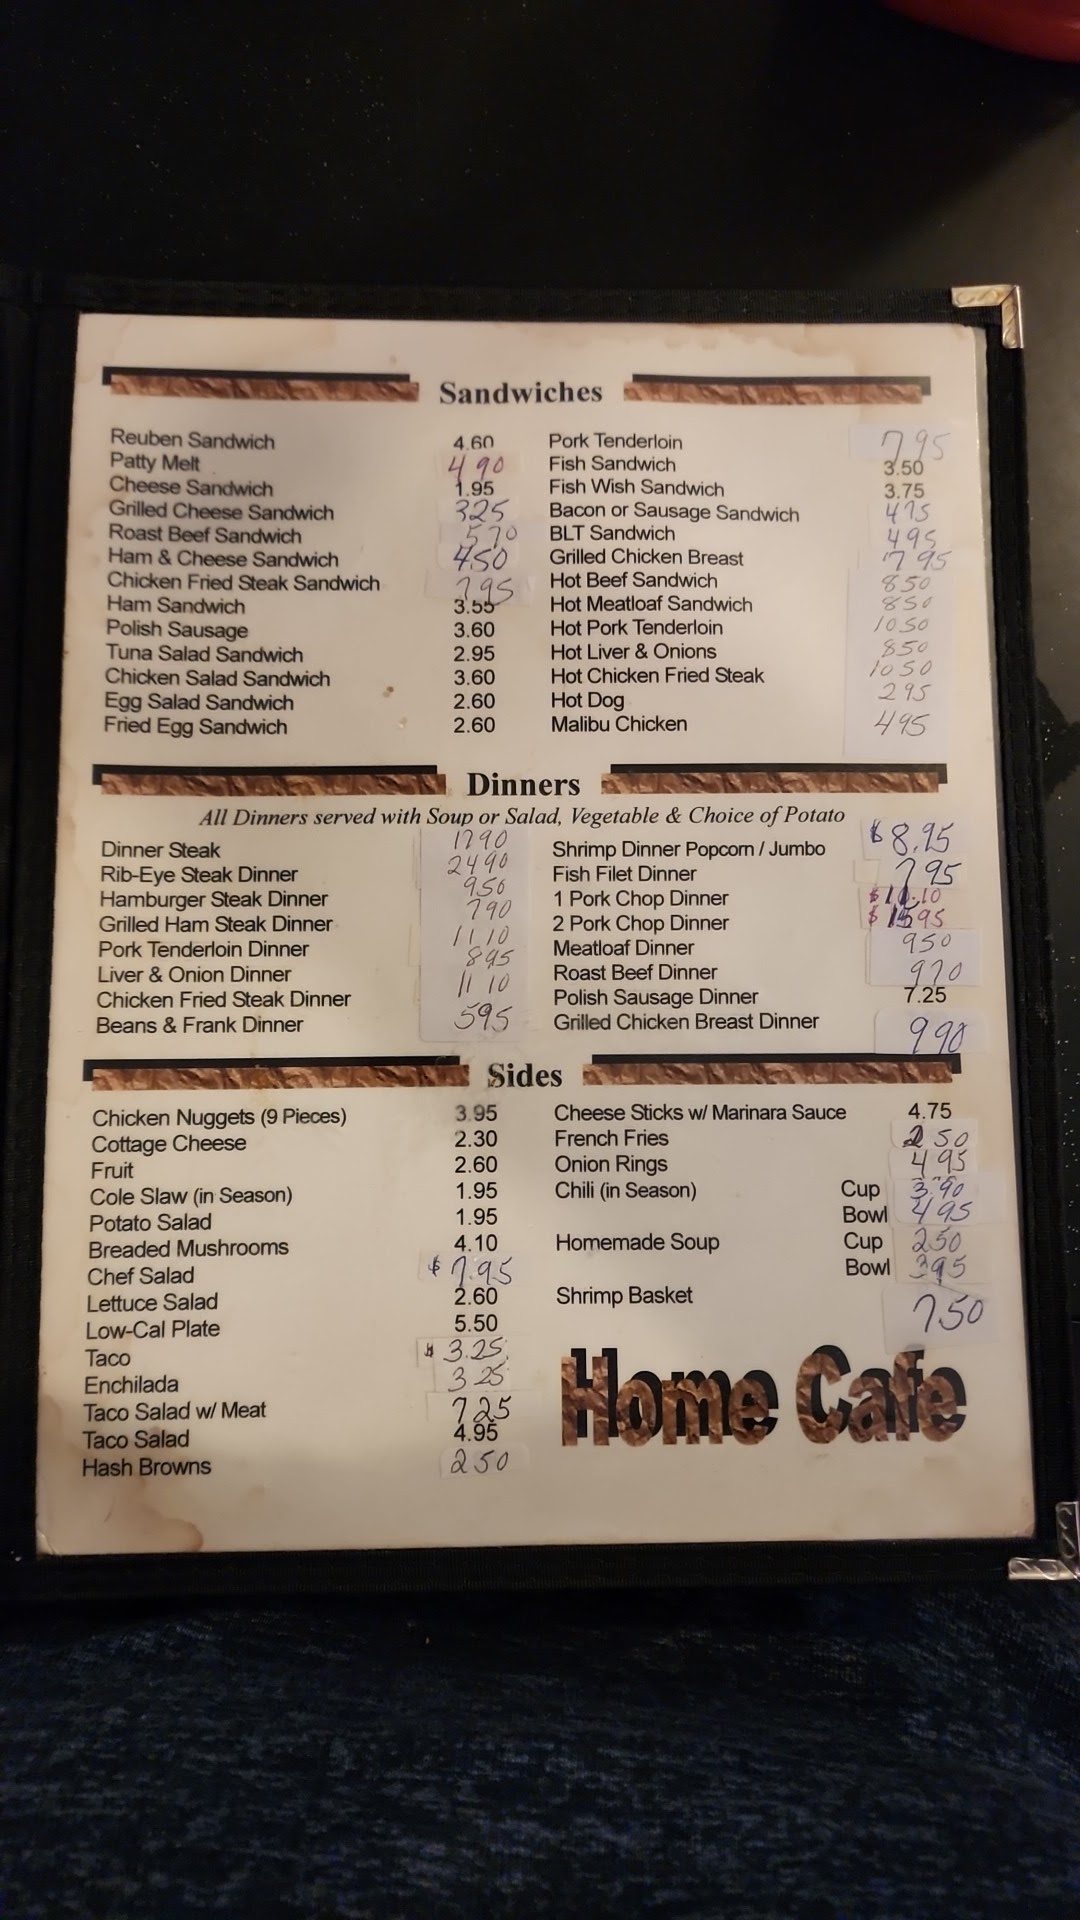 Sandwiches
Reuben Sandwich 4.60
Patty Melt 4 90
Cheese Sandwich 1.95
Grilled Cheese Sandwich 325
Roast Beef Sandwich 570
Ham & Cheese Sandwich 450
Chicken Fried Steak Sandwich 795
Ham Sandwich 3.55
Polish Sausage 3.60
Tuna Salad Sandwich 2.95
Chicken Salad Sandwich 3.60
Egg Salad Sandwich 2.60
Fried Egg Sandwich 2.60
Pork Tenderloin 795
Fish Sandwich 3.50
Fish Wish Sandwich 3.75
Bacon or Sausage Sandwich 475
BLT Sandwich 495
Grilled Chicken Breast 795
Hot Beef Sandwich 850
Hot Meatloaf Sandwich 850
Hot Pork Tenderloin 1050
Hot Liver & Onions 850
Hot Chicken Fried Steak 1050
Hot Dog 295
Malibu Chicken 495
Dinners
All Dinners served with Soup or Salad, Vegetable & Choice of Potato
Dinner Steak
Rib-Eye Steak Dinner 2490
Hamburger Steak Dinner 950
Grilled Ham Steak Dinner 790
Pork Tenderloin Dinner 11 10
Liver & Onion Dinner 895
Chicken Fried Steak Dinner 11 10
Beans & Frank Dinner 595
Shrimp Dinner Popcorn / Jumbo $8.95
Fish Filet Dinner 795
1 Pork Chop Dinner
2 Pork Chop Dinner $1595
Meatloaf Dinner 950
Roast Beef Dinner 970
Polish Sausage Dinner 7.25
Grilled Chicken Breast Dinner 990
Sides
Chicken Nuggets (9 Pieces) 3.95
Cottage Cheese 2.30
Fruit 2.60
Cole Slaw (in Season) 1.95
Potato Salad 1.95
Breaded Mushrooms 4.10
Chef Salad $7.95
Lettuce Salad 2.60
Low-Cal Plate 5.50
Taco $3.25
Enchilada 3 25
Taco Salad w/ Meat 725
Taco Salad 4.95
Hash Browns 250
Cheese Sticks w/ Marinara Sauce 4.75
French Fries 2 50
Onion Rings 495
Chili (in Season) Cup 3.90
Bowl 495
Homemade Soup Cup 250
Bowl 395
Shrimp Basket 750
Home Cafe